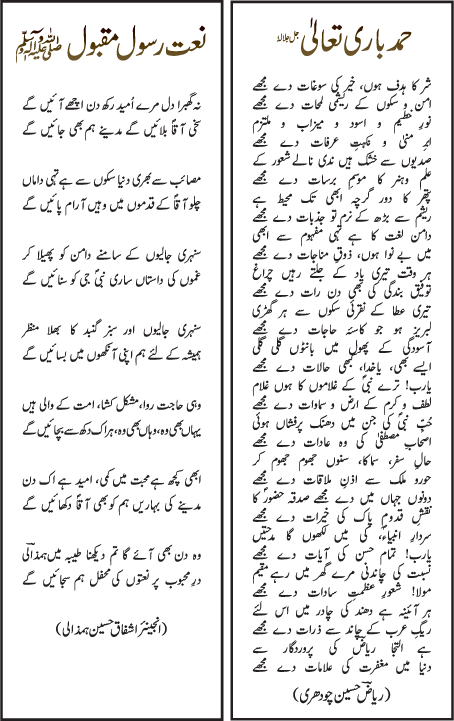 حمدِ باری تعالیٰ جل جلالہٗ
شر کا ہدف ہوں، خیر کی سوغات دے مجھے
امن و سکوں کے ریشمی لمحات دے مجھے
نورِ حطیم و اسود و میزاب و ملتزم
ابرِ منیٰ و نکہتِ عرفات دے مجھے
صدیوں سے خشک ہیں ندی نالے شعور کے
علم و ہنر کا موسمِ برسات دے مجھے
پتھر کا دور گرچہ ابھی تک محیط ہے
ریشم سے بڑھ کے نرم تو جذبات دے مجھے
دامن لغت کا ہے تہی مفہوم سے ابھی
میں بے نوا ہوں، ذوقِ مناجات دے مجھے
ہر وقت تیری یاد کے جلتے رہیں چراغ
توفیق بندگی کی بھی دن رات دے مجھے
تیری عطا کے نقرئی سکوں سے ہر گھڑی
لبریز ہو جو کاسۂ حاجات دے مجھے
آسودگی کے پھول میں بانٹوں گلی گلی
ایسے بھی، باخدا، بھی حالات دے مجھے
یارب! ترے نبیؐ کے غلاموں کا ہوں غلام
لطف و کرم کے ارض و سماوات دے مجھے
حُبِّ نبیؐ کی جن میں دھنک پرفشاں ہوئی
اصحابِ مصطفیٰؐ کی وہ عادات دے مجھے
حالِ سفر، سماکا، سنوں جھوم جھوم کر
حورو ملک سے اذنِ ملاقات دے مجھے
دونوں جہاں میں دے مجھے صدقہ حضورؐ کا
نقشِ قدومِ پاک کی خیرات دے مجھے
سردارِ انبیاءؐ، کی میں لکھوں گا مدحتیں
یارب! تمام حسن کی آیات دے مجھے
نسبت کی چاندنی مرے گھر میں رہے مقیم
مولا! شعورِ عظمتِ سادات دے مجھے
ہر آئینہ ہے دھند کی چادر میں اس لئے
ریگِ عرب کے چاند سے ذرات دے مجھے
ہے التجا ریاضؔ کی پروردگار سے
دنیا میں مغفرت کی علامات دے مجھے
(ریاضؔ حسین چودھری)
نعت رسول مقبول صلی اللہ علیہ وآلہ وسلم
نہ گھبرا دل مرے اُمید رکھ دن اچھے آئیں گے
سخی آقاؐ بلائیں گے مدینے ہم بھی جائیں گے
مصائب سے بھری دنیا سکوں سے ہے تہی داماں
چلو آقاؐ کے قدموں میں وہیں آرام پائیں گے
سنہری جالیوں کے سامنے دامن کو پھیلا کر
غموں کی داستاں ساری نبیؐ جی کو سنائیں گے
سنہری جالیوں اور سبز گنبد کا بھلا منظر
ہمیشہ کے لئے ہم اپنی آنکھوں میں بسائیں گے
وہی حاجت روا، مشکل کشا، امت کے والی ہیں
یہاں بھی وہ، وہاں بھی وہ، ہر اک دکھ سے بچائیں گے
ابھی کچھ ہے محبت میں کمی، امید ہے اک دن
مدینے کی بہاریں ہم کو بھی آقاؐ دکھائیں گے
وہ دن بھی آئے گا تم دیکھنا طیبہ میں ہمذالیؔ
درِ محبوب پر نعتوں کی محفل ہم سجائیں گے
(انجینئر اشفاق حسین ہمذالی)